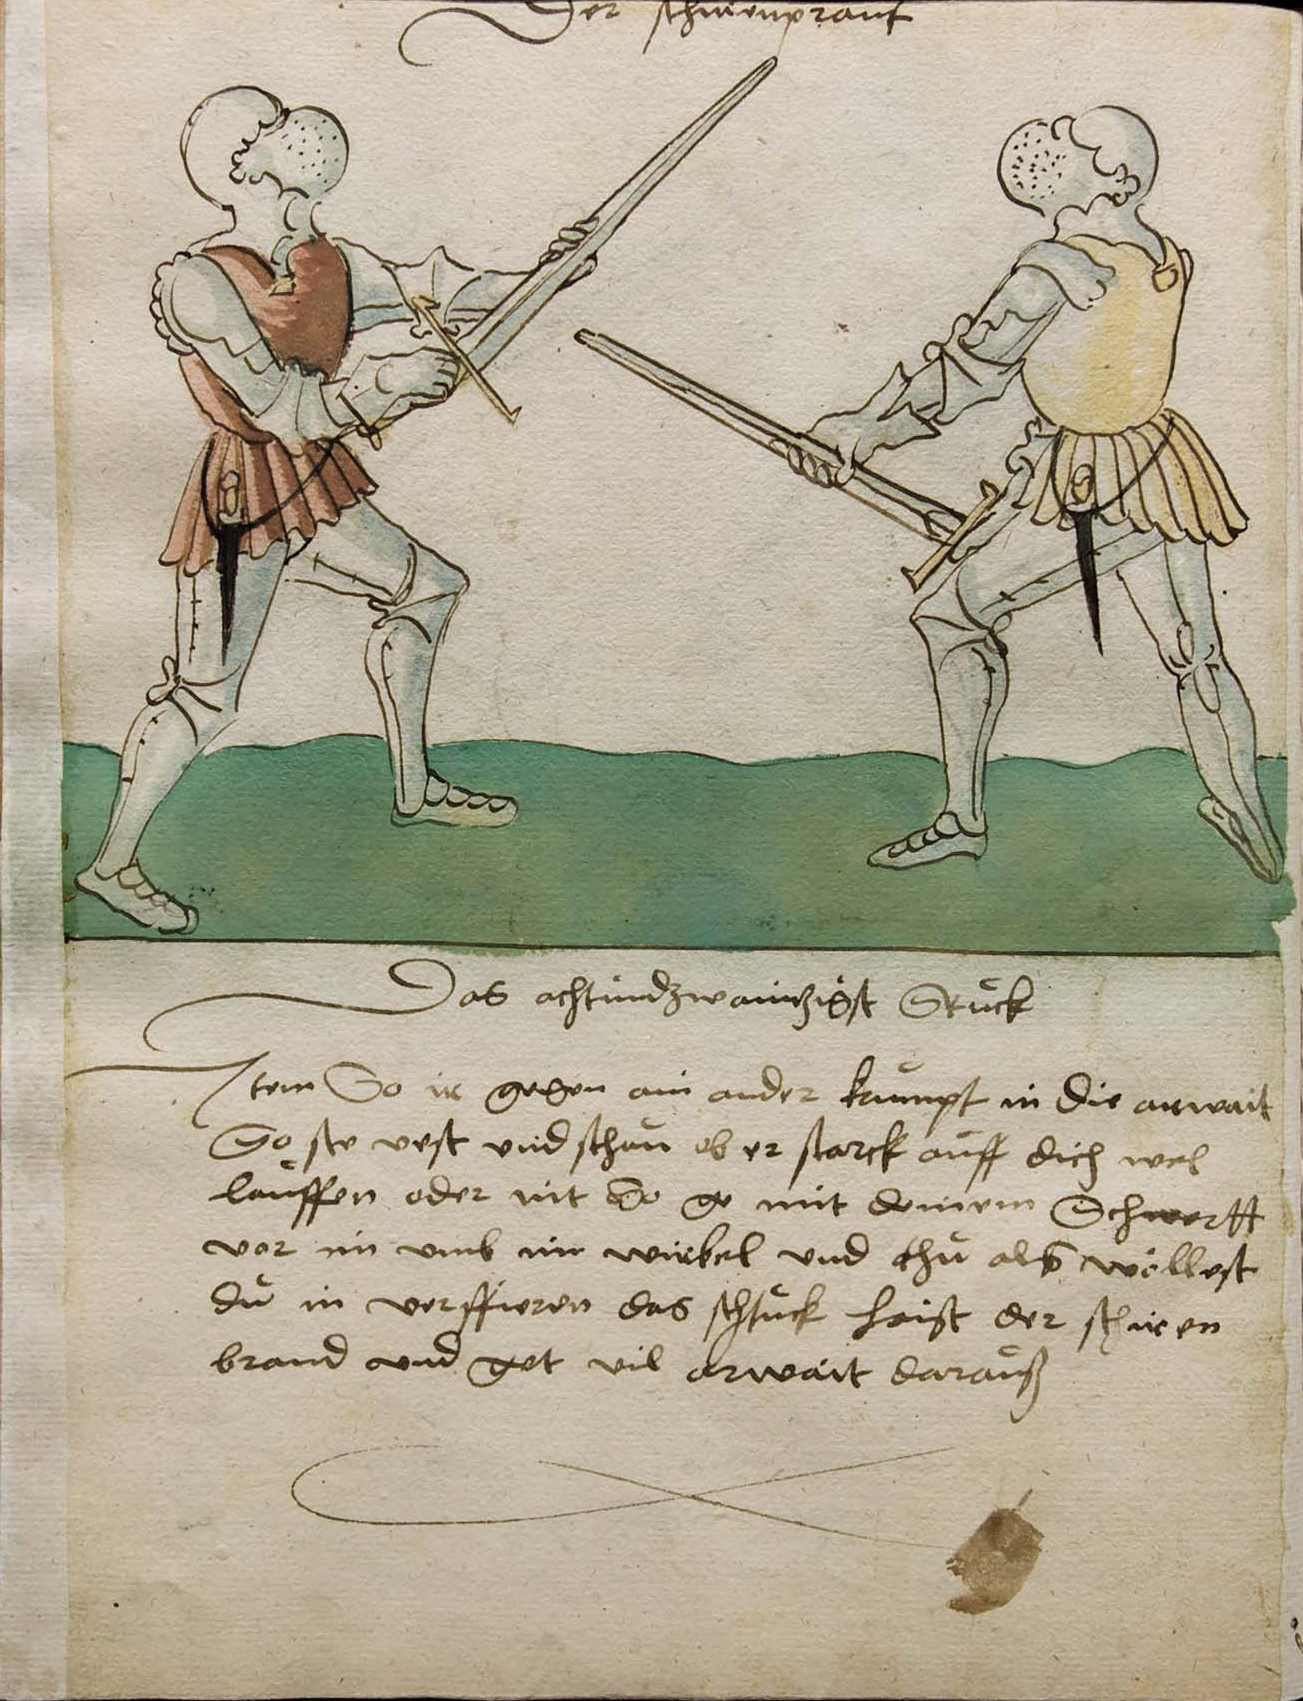 Der schirenprant
Das achtundzwaintzigist Stuck
Item So ir gegen ain ander kumpt in die arwait
So ste vest vnd schau ob er starck auff dich wel
lauffen oder nit So ge mit deinem Schwertt
vor im vmb im wirbel vnd thu als wöllest
du in verffieren das schtuck haist der schiren
brand vnd get vil arwait darauß